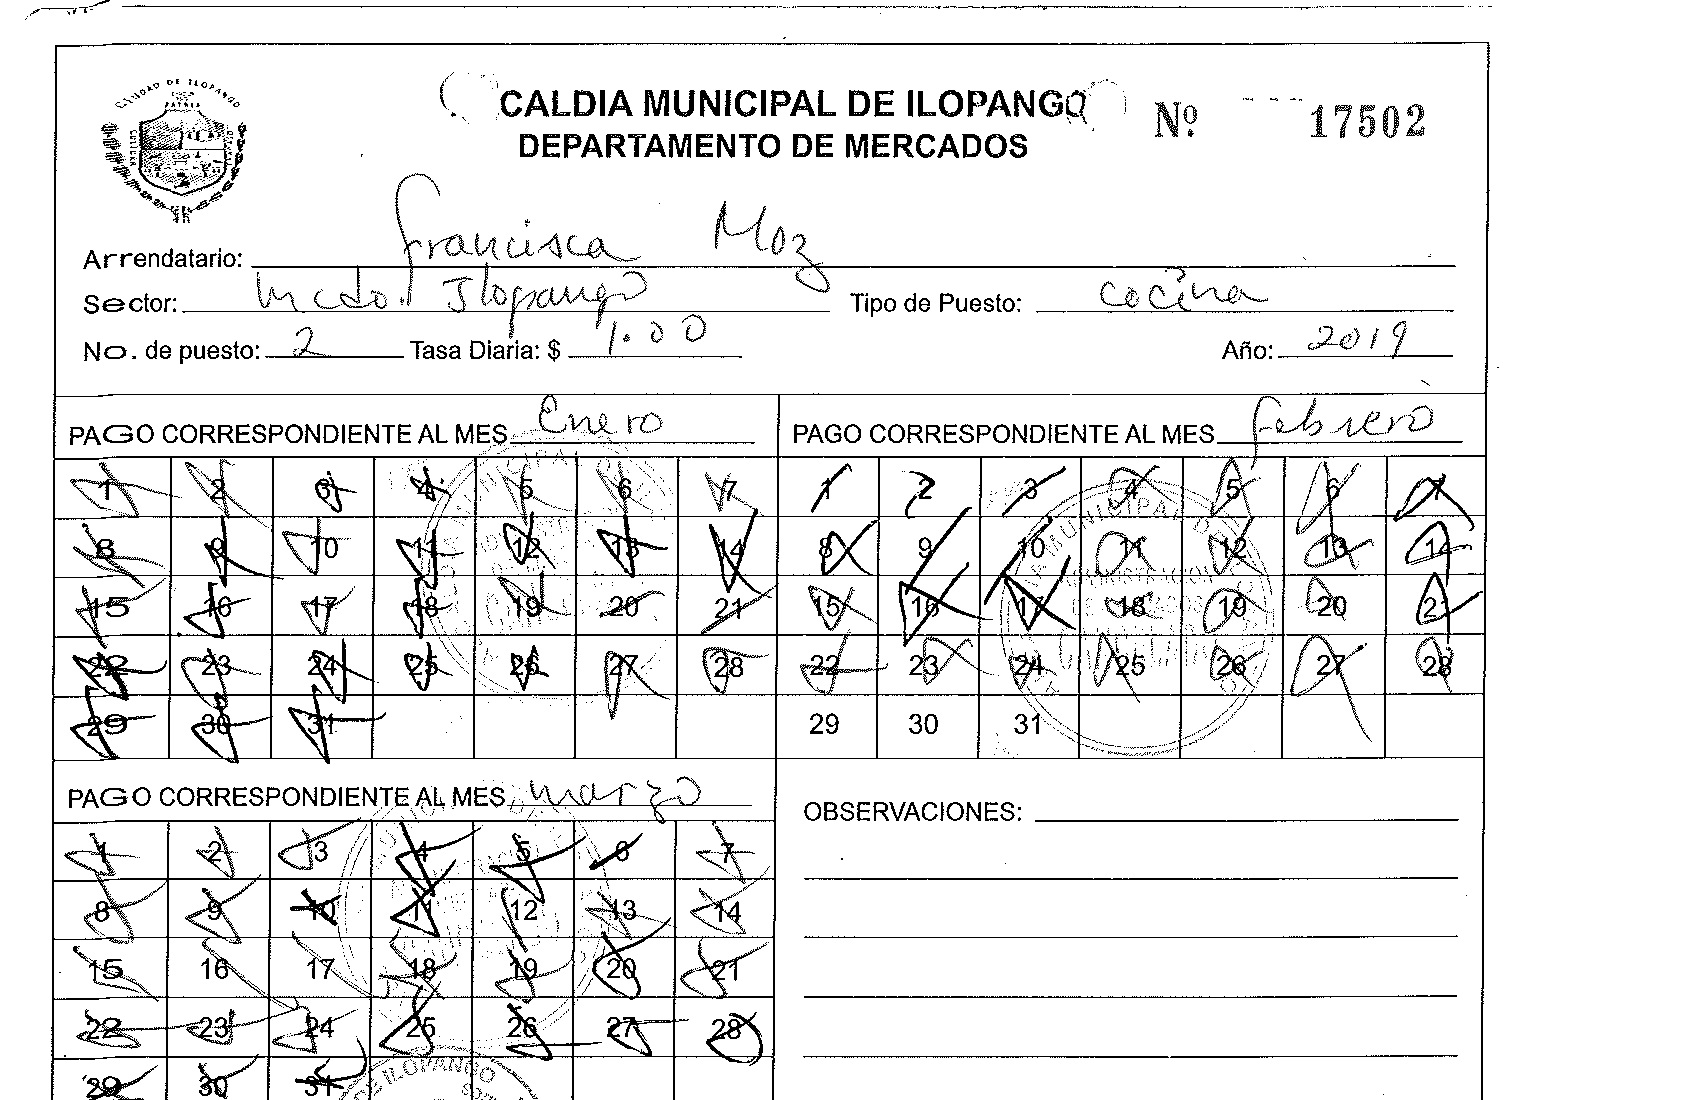 CALDIA MUNICIPAL DE ILOPANGO
DEPARTAMENTO DE MERCADOS
Nº 17502
Arrendatario: Francisca Moz
Sector: Mcdo. Ilopango Tipo de Puesto: cocina
No. de puesto: 2 Tasa Diaria: $ 1.00 Año: 2019
PAGO CORRESPONDIENTE AL MES Enero
1 2 3 4 5 6 7
8 9 10 11 12 13 14
15 16 17 18 19 20 21
22 23 24 25 26 27 28
29 30 31
PAGO CORRESPONDIENTE AL MES febrero
1 2 3 4 5 6 7
8 9 10 11 12 13 14
15 16 17 18 19 20 21
22 23 24 25 26 27 28
29 30 31
PAGO CORRESPONDIENTE AL MES marzo
1 2 3 4 5 6 7
8 9 10 11 12 13 14
15 16 17 18 19 20 21
22 23 24 25 26 27 28
29 30 31
OBSERVACIONES:
DE ILOPANGO